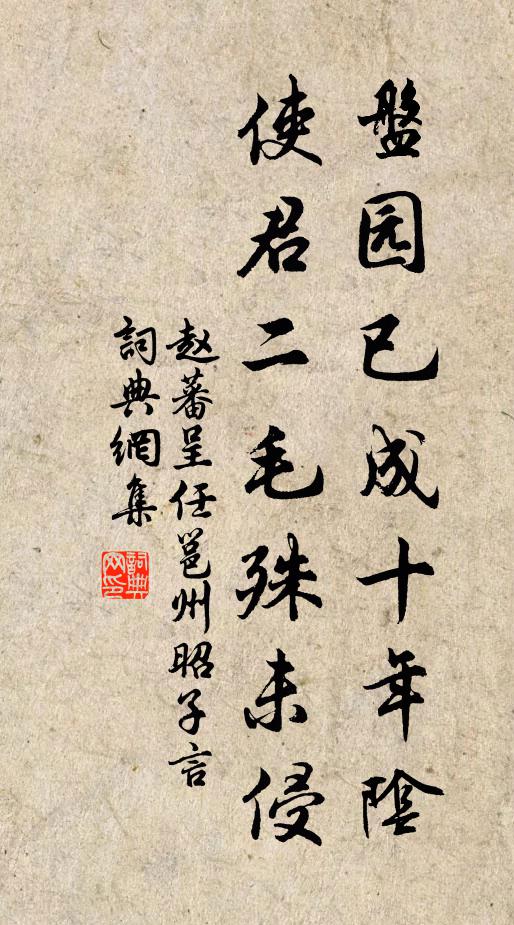 盤园已成十年陰
使君二毛殊未侵
赵蕃呈任邕州昭子言
詞典網集
詞典网印